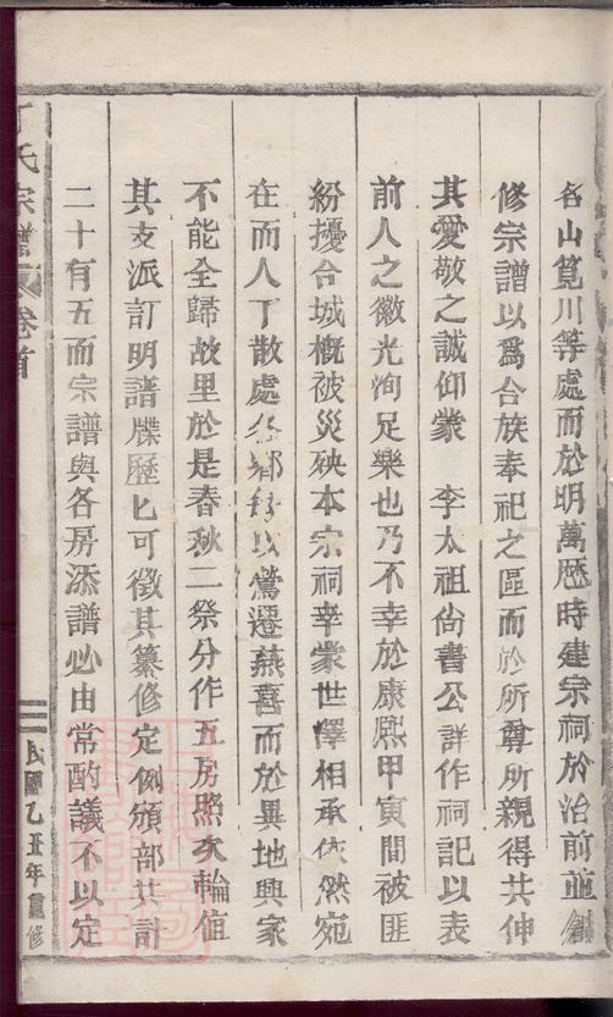 各山筧川等處而於明萬厯時建宗祠於治前並創
修宗譜以爲合族奉祀之區而於所尊所親得共伸
其愛敬之誠仰蒙　李太祖尙書公詳作祠記以表
前人之徽光洵足樂也乃不幸於康熙甲寅間被匪
紛擾合城概被災殃本宗祠幸蒙世澤相承依然宛
在而人丁散處　鄉　以鶯遷燕喜而於異地興家
不能全歸故里於是春秋二祭分作五房照次輪值
其支派訂明譜牒歷匕可徵其纂修定例頒部共計
二十有五而宗譜與各房添譜必由常酌議不以定
丁氏宗譜　卷首　三　民國乙丑年重修